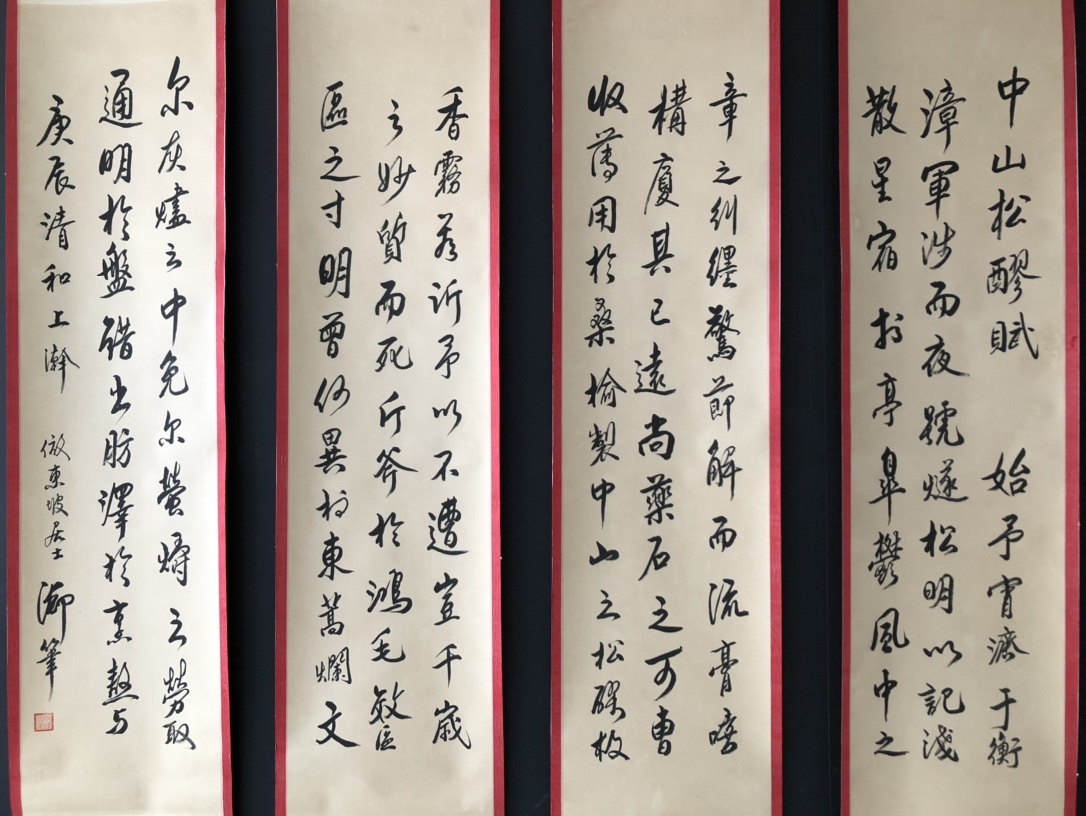 中山松醪賦 始予宵濟于衡
漳軍涉而夜號燧松明以記淺
散星宿於亭皐鬱風中之
章之糾纆驚節解而流膏嗟
構廈其已遠尚藥石之可曹
收薄用於桑榆製中山之松醪救
香霧若訴予以不遭豈千歲
之妙質而死斤斧於鴻毛效區
區之寸明曾何異於束蒿爛文
尔灰燼之中免尔螢爝之勞取
通明於盤錯出肪澤於烹熬与
庚辰清和上澣 倣東坡居士 御筆